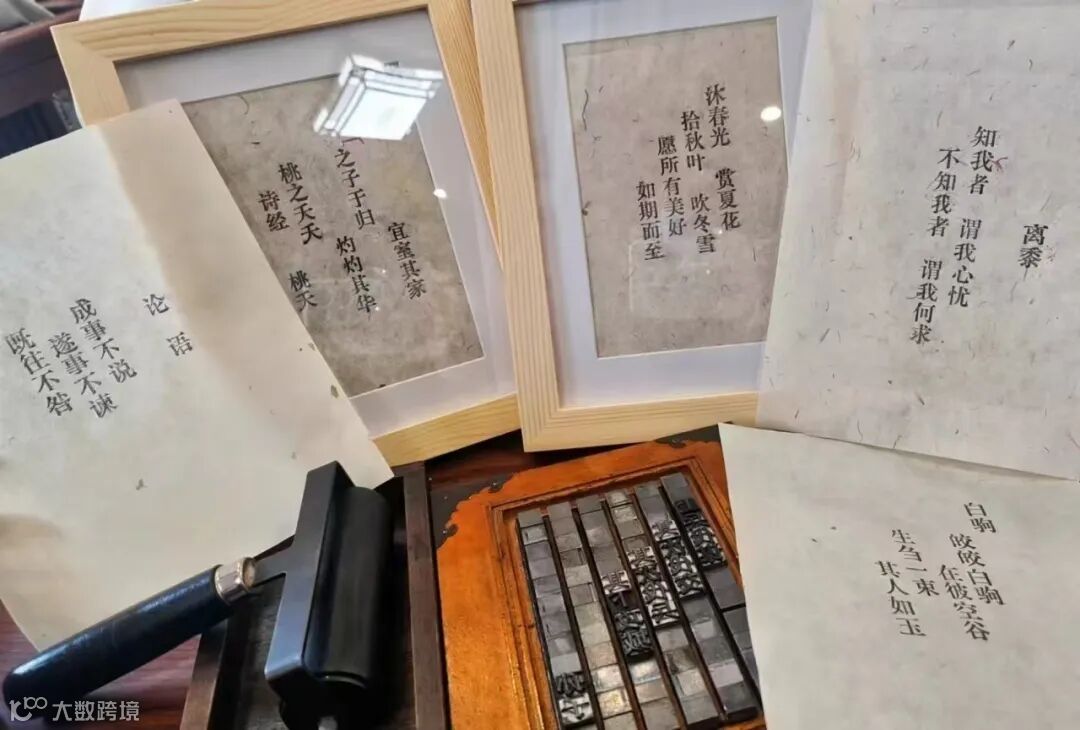 论语
成事不说
遂事不谏
既往不咎
诗经 桃夭
桃之夭夭 灼灼其华
之子于归 宜室其家
沐春光 赏夏花
拾秋叶 吹冬雪
愿所有美好
如期而至
离黍
知我者 谓我心忧
不知我者 谓我何求
白驹
皎皎白驹
在彼空谷
生刍一束
其人如玉
大数跨境